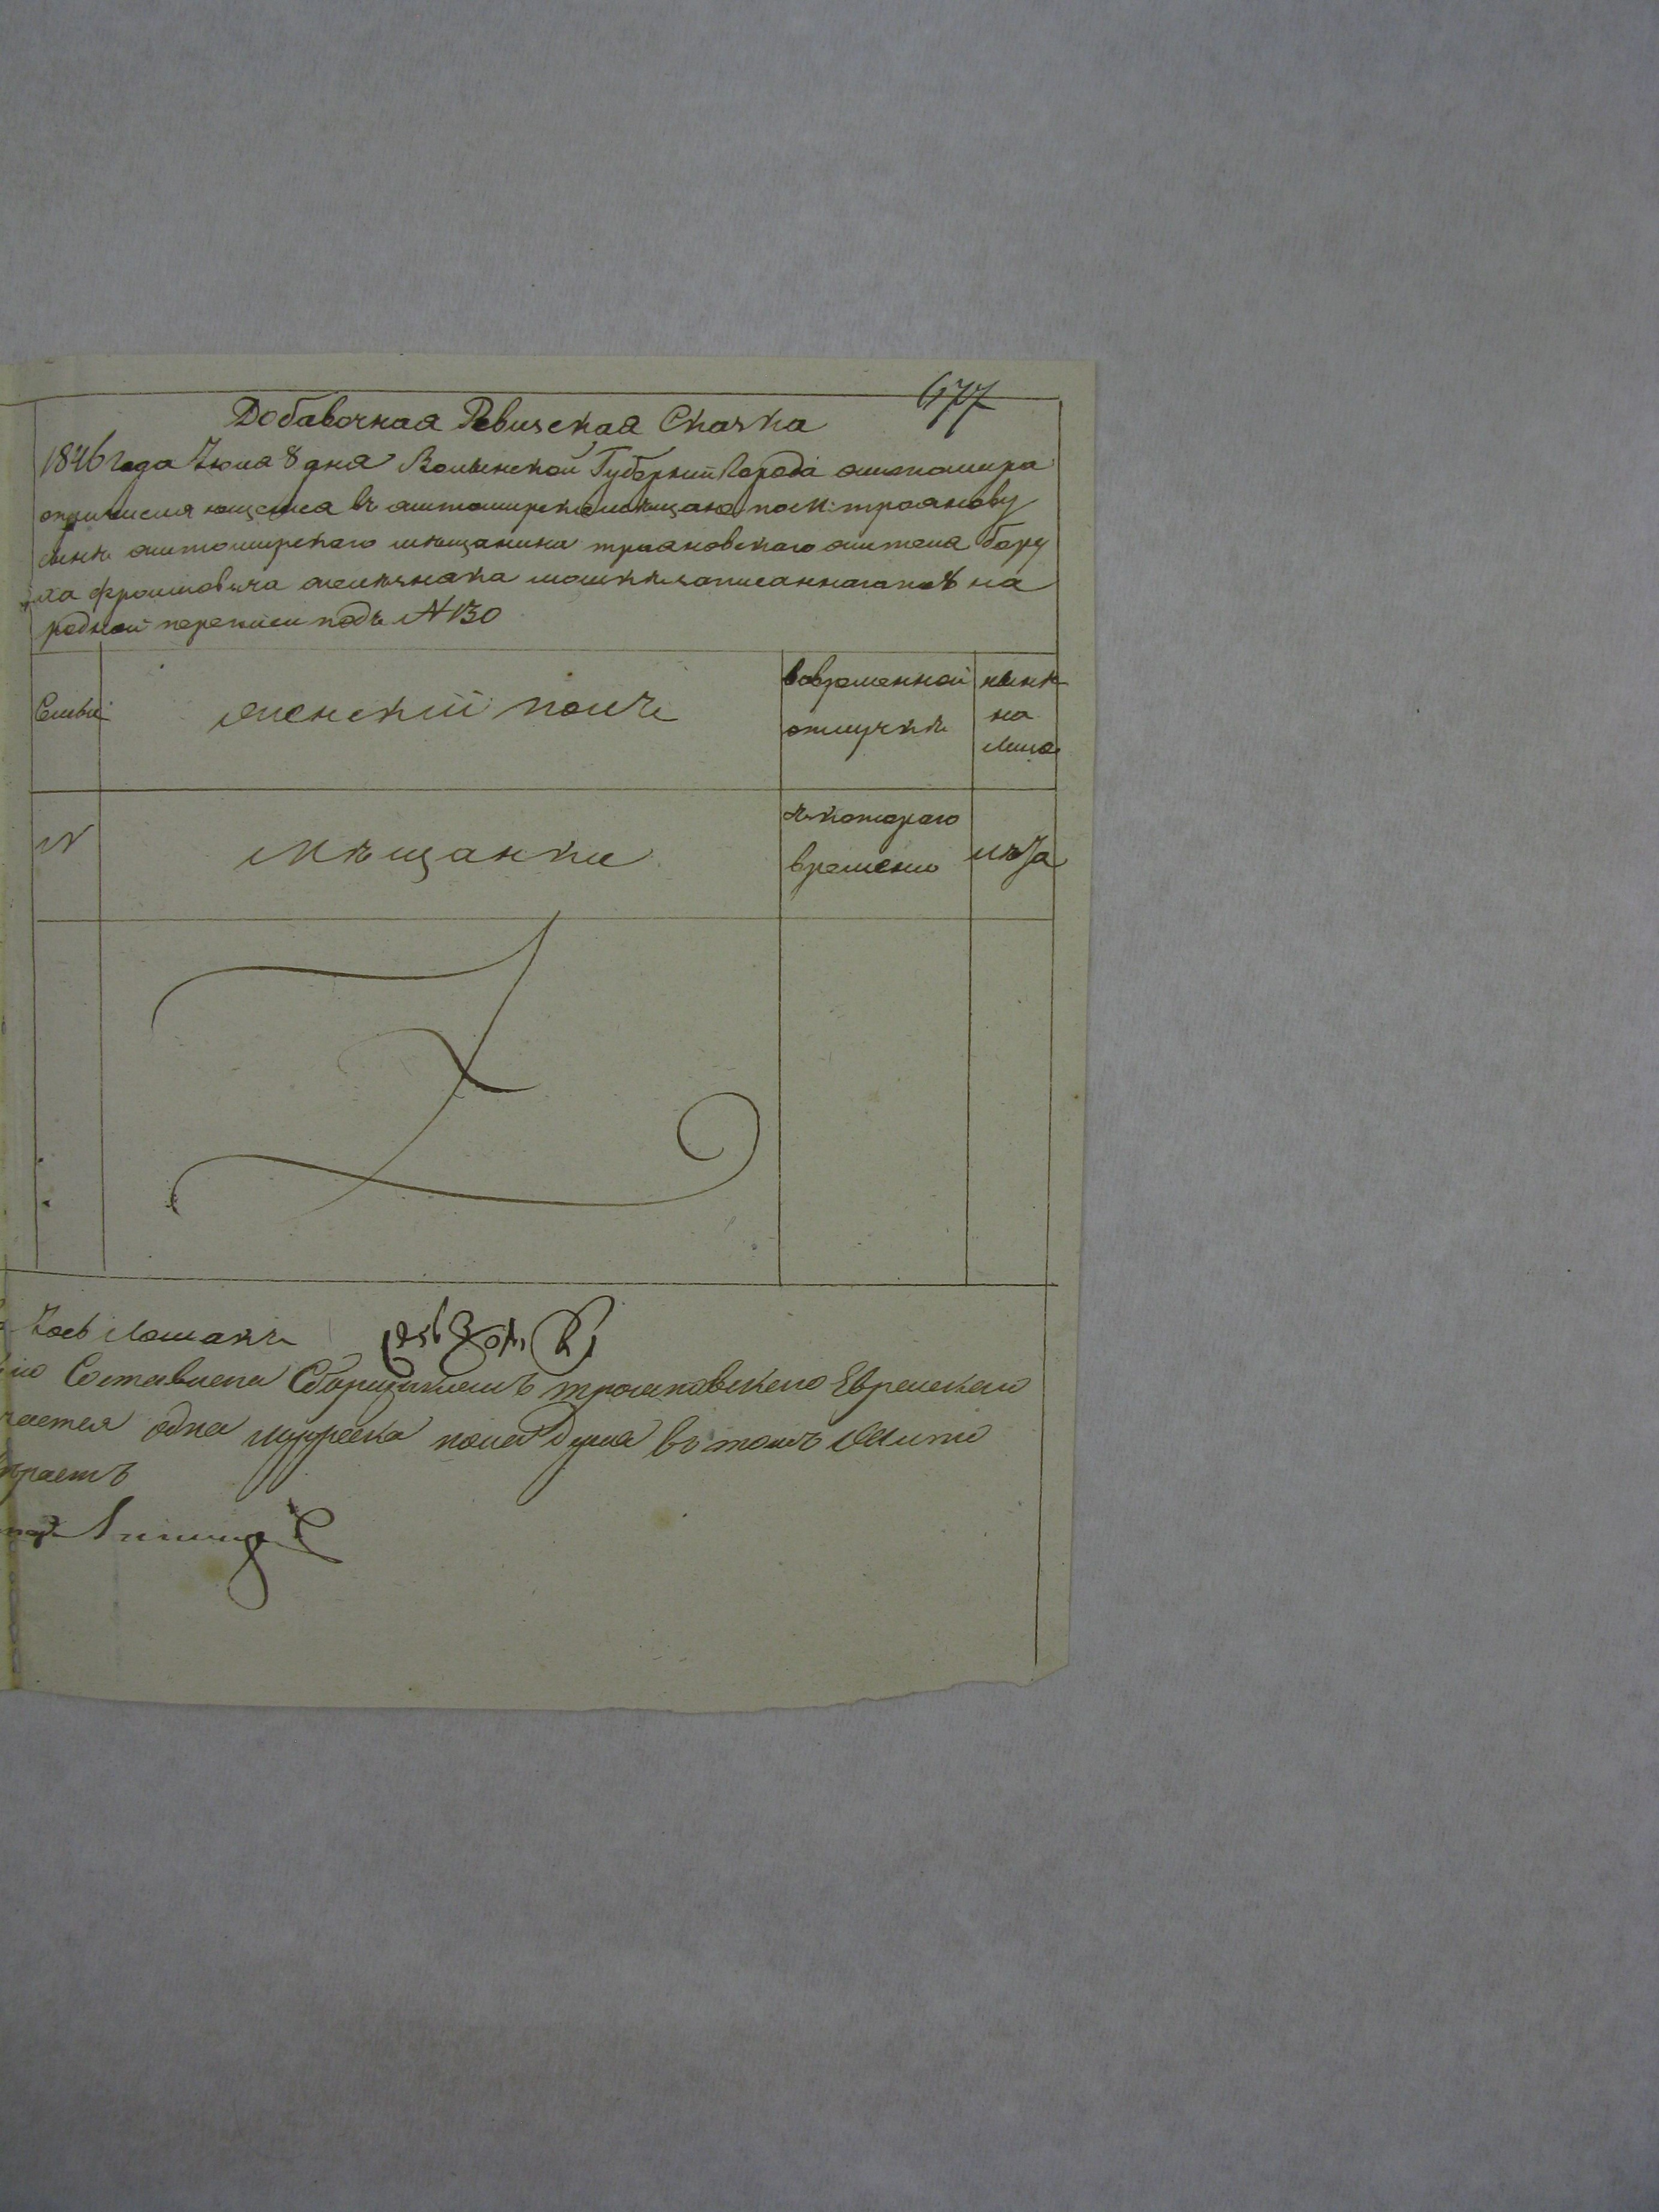 677
Добавочная Ревизская Сказка
1846 года Июля 8 дня Волынской Губернии Города житомира
о причисляющемся въ житомирские мещане по м: троянову
сынѣ житомирского мѣщанина трояновского жителя бору
ха фроимовича мошкѣ записанного по 8 на
родной переписи подъ №130
Семьи
женский полъ
во временной отлучкѣ
нынѣ на лицо
№
Мѣщанки
съ которого времени
лѣта
Лошакъ
Составлена Сборщикомъ трояновского Еврейского
одна мужеска пола душа въ томъ